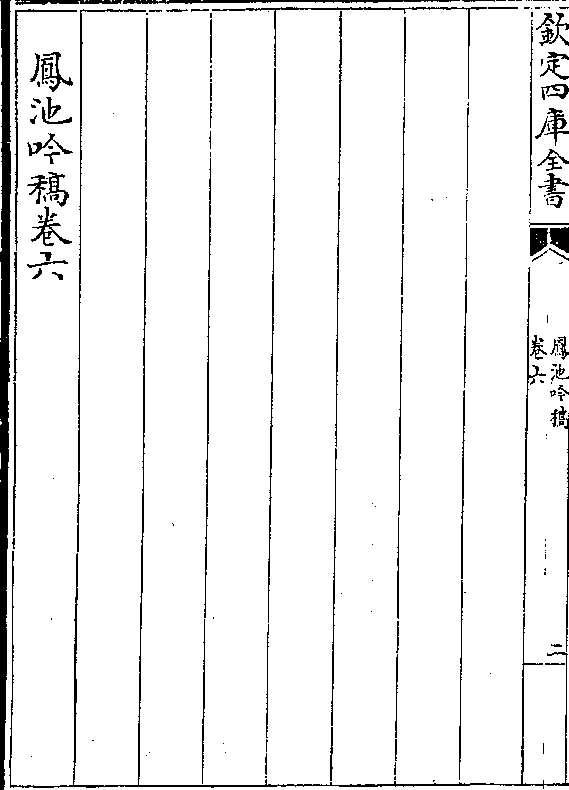 欽定四庫全書
鳳池吟稿
卷六
二
鳳池吟稿卷六